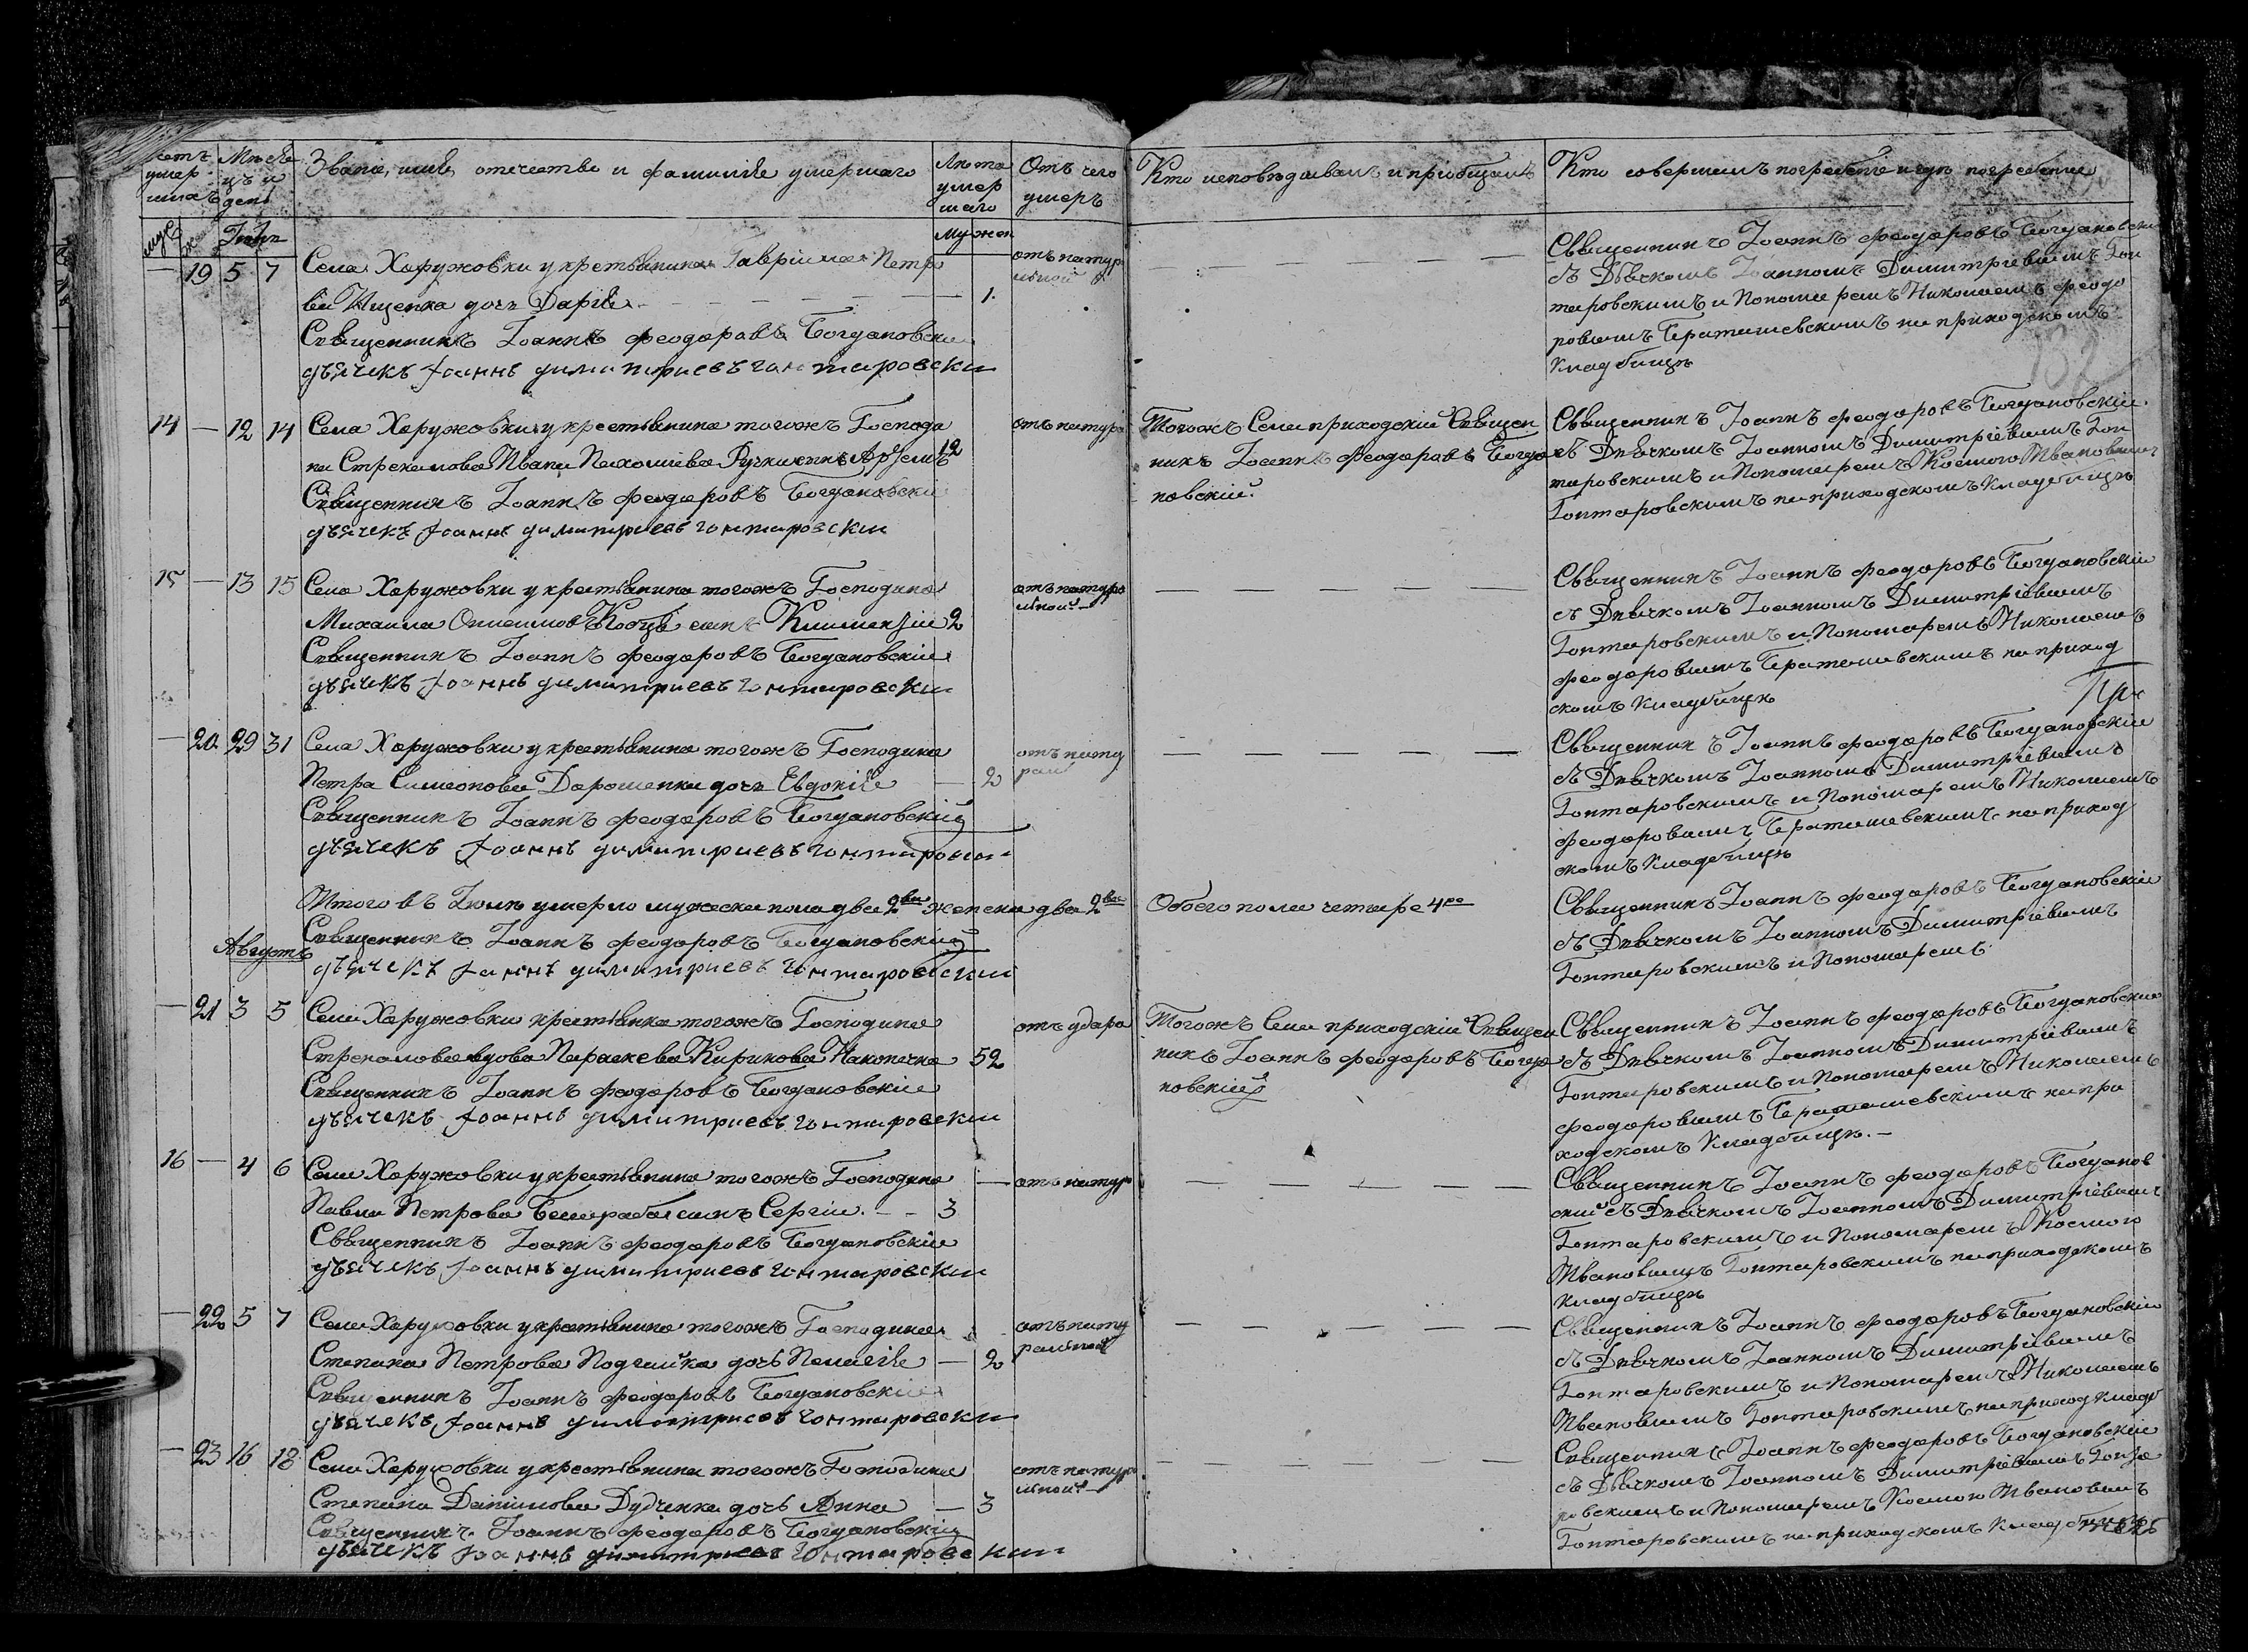 счетъ умер шихъ
Мѣсяцъ и день
Званіе, имя, отчество и фамилія умершаго
Лѣта умер шаго
Отъ чего умеръ
Кто исповѣдывалъ и пріобщалъ
Кто совершалъ погребеніе и гдѣ погребены
муж
Мужен
19 5 7 Села Харужовки у крестьянина Гавріила Петро
ва Ищенка дочь Дарія 1.
Священникъ Іоаннъ Феодоровъ Богдановскій
дьячекъ Іоаннъ Димитриевъ Гонтаровски
отъ натур
альной
Священникъ Іоаннъ Феодоровъ Богдановски
съ Дьячкомъ Іоанномъ Димитріевымъ Гон
таровскимъ и Пономаремъ Николаемъ Феодо
ровымъ Браташевскимъ на приходскомъ
кладбищѣ
14 — 12 14 Села Харужовки у крестьянина тогожъ Господи
на Стрекалова Ивана Пахомиева 12
Священникъ Іоаннъ Феодоровъ Богдановскій
дьячекъ Іоаннъ Димитриевъ Гонтаровски
отъ натура
Тогожъ Села приходскій Священ
никъ Іоаннъ Феодоровъ Богда
новскій.
Священникъ Іоаннъ Феодоровъ Богдановскій
съ Дьячкомъ Іоанномъ Димитріевымъ Гон
таровскимъ и Пономаремъ Космою Ивановымъ
Гонтаровскимъ на приходскомъ кладбищѣ
15 — 13 15 Села Харужовки у крестьянина тогожъ Господина
Михаила сынъ Климентій 2
Священникъ Іоаннъ Феодоровъ Богдановскій
дьячекъ Іоаннъ Димитриевъ Гонтаровски
отъ натура
льной
Священникъ Іоаннъ Феодоровъ Богдановскій
съ Дьячкомъ Іоанномъ Димитріевымъ
Гонтаровскимъ и Пономаремъ Николаемъ
Феодоровымъ Браташевскимъ на приход
скомъ кладбищѣ
— 20 29 31 Села Харужовки у крестьянина тогожъ Господина
Петра Симеонова Дорошенка дочь Евдокія — 2
Священникъ Іоаннъ Феодоровъ Богдановскій
дьячекъ Іоаннъ Димитриевъ Гонтаровски
отъ нату
рал
Священникъ Іоаннъ Феодоровъ Богдановскій
съ Дьячкомъ Іоанномъ Димитріевымъ
Гонтаровскимъ и Пономаремъ Николаемъ
Феодоровымъ Браташевскимъ на приход
скомъ кладбищѣ
Итого въ Іюлѣ умерло мужеска пола два 2ва женска два 2ва
Обоего пола четыре 4ре
Священникъ Іоаннъ Феодоровъ Богдановскій
дьячекъ Іоаннъ Димитриевъ Гонтаровскии
Священникъ Іоаннъ Феодоровъ Богдановскій
съ Дьячкомъ Іоанномъ Димитріевымъ
Гонтаровскимъ и Пономаремъ
Августъ
— 21 3 5 Села Харужовки крестьянка тогожъ Господина
Стрекалова вдова Параскева Кирикова 52
Священникъ Іоаннъ Феодоровъ Богдановскій
дьячекъ Іоаннъ Димитриевъ Гонтаровскии
отъ удара
Тогожъ Села приходскій Священ
никъ Іоаннъ Феодоровъ Богда
новскій
Священникъ Іоаннъ Феодоровъ Богдановскій
съ Дьячкомъ Іоанномъ Димитріевымъ
Гонтаровскимъ и Пономаремъ Николаемъ
Феодоровымъ Браташевскимъ на при
ходскомъ кладбищѣ.
16 — 4 6 Села Харужовки у крестьянина тогожъ Господина
Павла Петрова сынъ Сергій. 3
Священникъ Іоаннъ Феодоровъ Богдановскій
дьячекъ Іоаннъ Димитриевъ Гонтаровскии
отъ натур
Священникъ Іоаннъ Феодоровъ Богданов
скій съ Дьячкомъ Іоанномъ Димитріевымъ
Гонтаровскимъ и Пономаремъ Космою
Ивановымъ Гонтаровскимъ на приходскомъ
кладбищѣ
— 22 5 7 Села Харужовки у крестьянина тогожъ Господина
Степана Петрова дочь Пелагія — 2
Священникъ Іоаннъ Феодоровъ Богдановскій
дьячекъ Іоаннъ Димитриевъ Гонтаровски
отъ нату
ральной
Священникъ Іоаннъ Феодоровъ Богдановскій
съ Дьячкомъ Іоанномъ Димитріевымъ
Гонтаровскимъ и Пономаремъ Николаемъ
Ивановымъ Гонтаровскимъ на приход кладб
— 23 16 18 Села Харужовки у крестьянина тогожъ Господина
Степана Даніилова Дудченка дочь Анна — 3
Священникъ Іоаннъ Феодоровъ Богдановскій
дьячекъ Іоаннъ Димитриевъ Гонтаровскии
отъ натура
льной
Священникъ Іоаннъ Феодоровъ Богдановскій
съ Дьячкомъ Іоанномъ Димитріевымъ Гонта
ровскимъ и Пономаремъ Космою Ивановымъ
Гонтаровскимъ на приходскомъ кладбищѣ